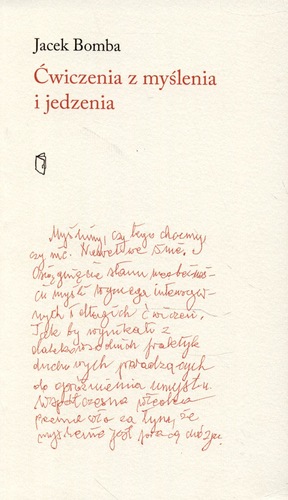 Jacek Bomba
Ćwiczenia z myślenia
i jedzenia
Myślimy, czy tego chcemy
czy nie. Niewątpliwe snie.
Osiągnięcie stanu nieobecnoś-
ci myśli wymaga intensyw-
nych i długich ćwiczeń.
Jak by wynikało z
dalekowschodnich praktyk
duchowych prowadzących
do opróżnienia umysłu.
Współczesna
przemawia za tym, że
myślenie jest pracą mózgu.